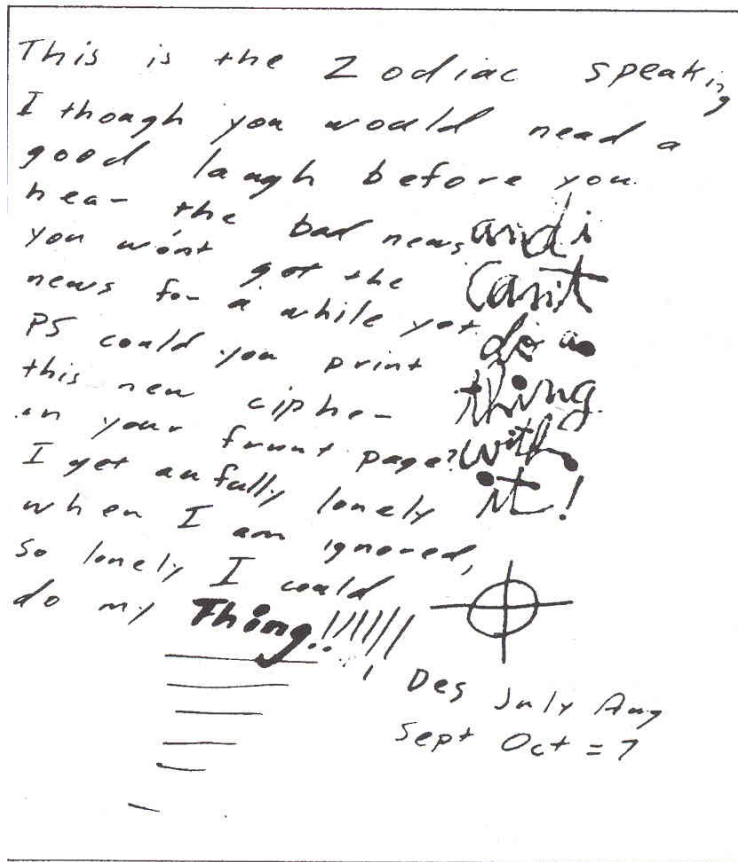 This is the Zodiac speaking
I though you would need a
good laugh before you
hear the bad news
you won't get the
news for a while yet
PS could you print
this new cipher
on your frunt page?
I get aufully lonely
when I am ignored,
so lonely I could
do my Thing!!!!!!
and i
Can't
do a
thing
with
it!
Des July Aug
Sept Oct = 7